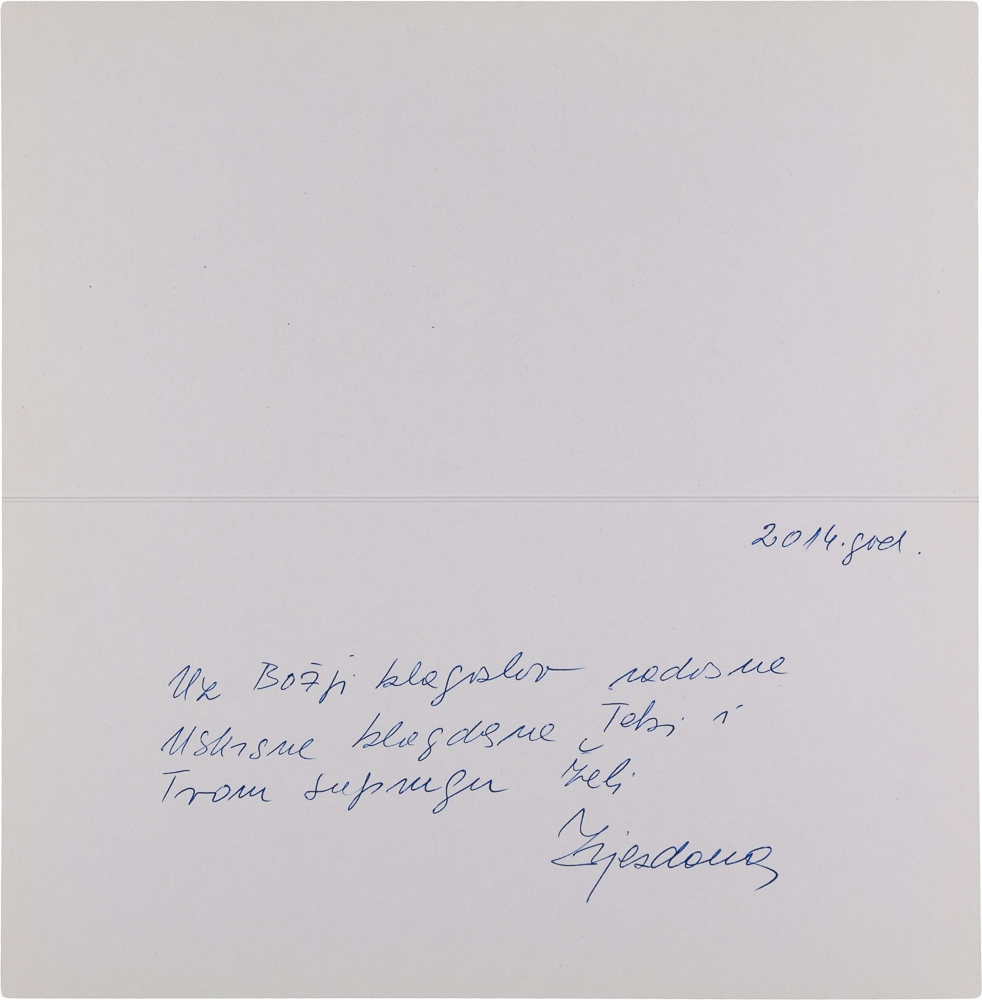 2014.god.
Uz Božji blagoslov radosne
Uskrsne blagdane Tebi i
Tvom suprugu želi
Zvjezdana